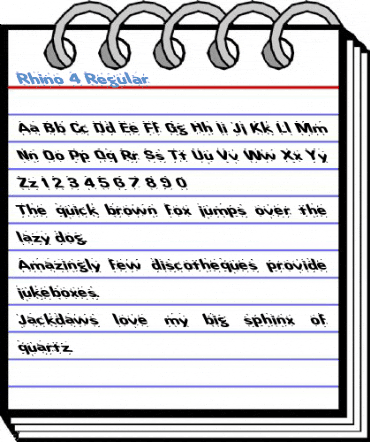 Rhino 4 Regular
Aa Bb Cc Dd Ee Ff Gg Hh Ii Jj Kk Ll Mm
Nn Oo Pp Qq Rr Ss Tt Uu Vv Ww Xx Yy
Zz 1 2 3 4 5 6 7 8 9 0
The quick brown fox jumps over the
lazy dog
Amazingly few discotheques provide
jukeboxes.
Jackdaws love my big sphinx of
quartz